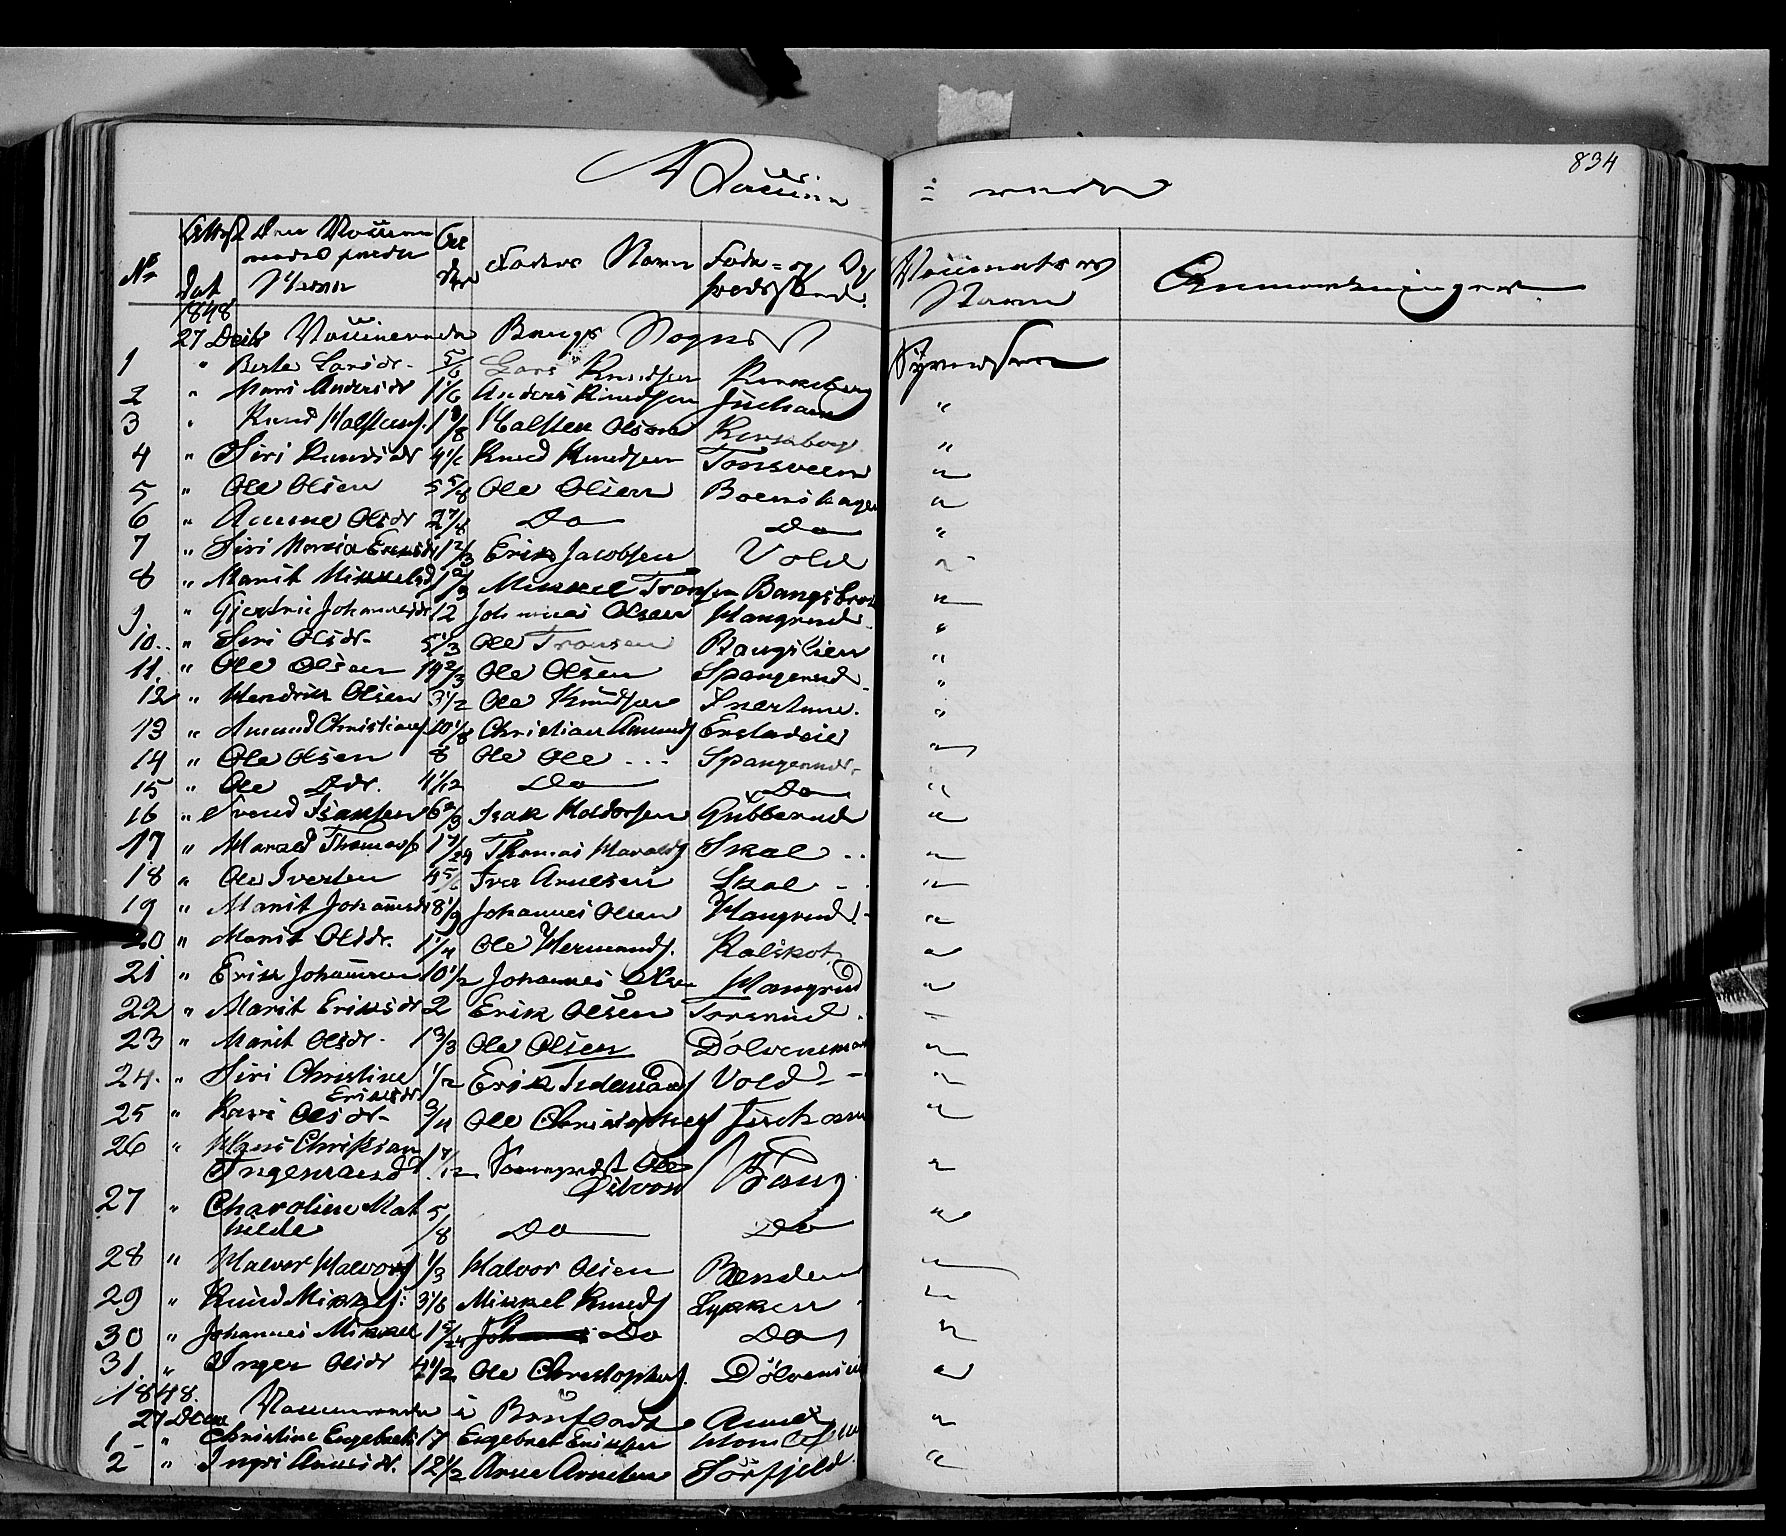 834
Vaccine = rede
No Attest Dat Den Vaccineredes fulde Navn Al der Faders Navn Føde = og Op holdssted. Vaccinateurs Navn Anmærkninger
1848
27 Decbr Vaccinerede Bangs Sogn Syvendsen
1 " Berte Larsdr. 5/6 Lars Knudsen
2 " Mari Andersdr 1 1/6 Anders Knudsen "
3 " Knud Halstens. 1 Halsten Olsen "
4 " Siri Knudsdr 4 1/6 Knud Knudsen Tonsveen "
5 " Ole Olsen 5 5/8 Ole Olsen "
6 " Anne Olsdr 2 Do Do "
7 " Siri Maria Eriksdr 1 2/3 Erik Jacobsen Vold "
8 " Marit Mikkelsd 1 2/3 Mikkel Tronsen Bangsbroe "
9 " Gjertrie Johannesdr 12 Johannes Olsen Hangrud "
10 " Siri Olsdr. 5 1/3 Ole Tronsen Bangslien "
11 " Ole Olsen 14 2/3 Ole Olsen Spangerud "
12 " Hendrik Olsen 3 1/2 Ole Knudsen Snertum "
13 " Amund Christians. 10 1/8 Christian Amunds "
14 " Ole Olsen 8 Ole Ole ... Spangerud "
15 " Ole Ddr. 4 1/12 Do Do "
16 " Svend Isaksen 6 2/3 Isak Haldorsen Gubberud "
17 " Harald Thomass 1 7/24 Thomas Haralds Skal .. "
18 " Ole Iversen 4 5/6 Iver Arnesen Skal - "
19 " Marit Johannsdr 8 1/9 Johannes Olsen Hangrud "
20 " Marit Olsdr. 1 1/4 Ole Hermunds. Kalskot "
21 " Erik Johannesen 10 1/2 Johannes Olsen Hangrud "
22 " Marit Eriksdr 2 Erik Olsen "
23 " Marit Olsdr. 1 2/3 Ole Olsen "
24. " Siri Christine Eriksdr 1/2 Erik Tidemands Vold "
25 " Kari Olsdr. 3/4 Ole Christophers "
26 " Hans Christian Ingemand 1 7/12 Ole Bang "
27 " Charoline Mathilde 5/8 Do Do "
28 " Halvor Halvors 1/3 Halvor Olsen Bænden "
29 " Knud Mikkels: 3 1/6 Mikkel Knuds Lykken "
30 " Johannes Mikkel 1 5/24 Johannes Do Do "
31 " Inger Olsdr 4 1/2 Ole Christophers. "
1848.
27 Decem Vaccinerede i Brufladt Annex "
1 " Christine Engebrets 17 Engebret Eriksen "
2 " Ingri Arnesdr. 12 1/2 Arne Arnesen Sørfjeld "